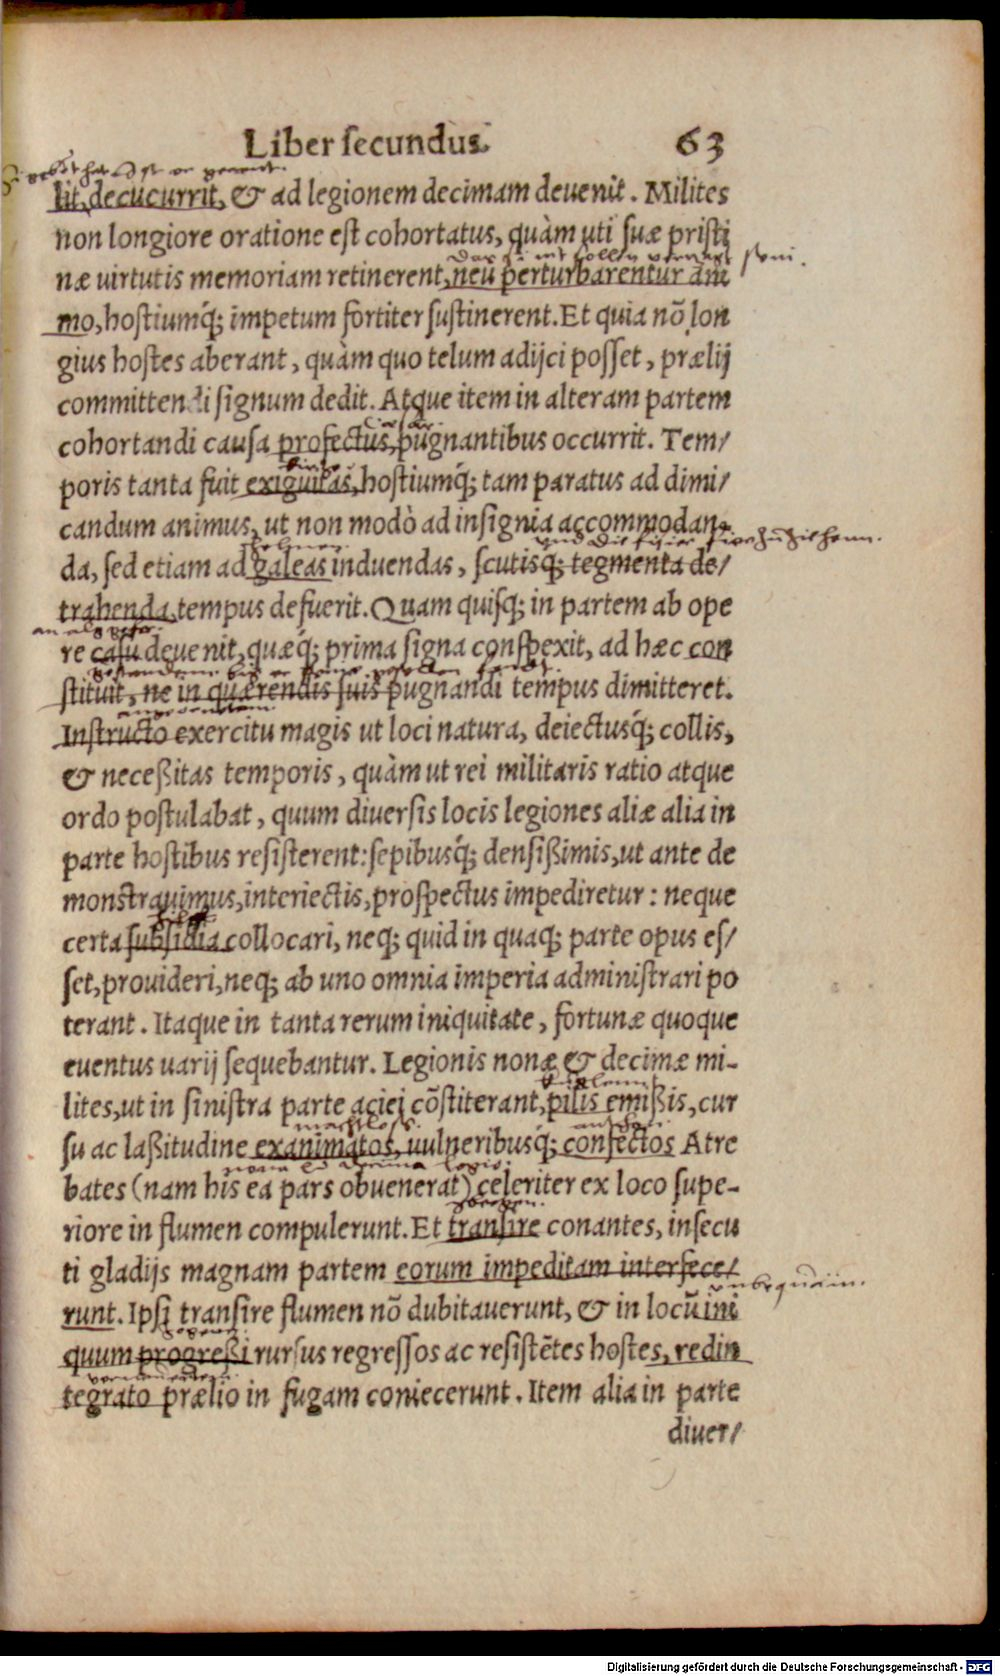 Liber secundus. 63
lit, decucurrit, & ad legionem decimam deuenit. Milites
non longiore oratione est cohortatus, quàm uti suæ pristi
næ uirtutis memoriam retinerent, neu perturbarentur ani
mo, hostiumq́; impetum fortiter sustinerent. Et quia nõ lon
gius hostes aberant, quàm quo telum adijci posset, prælij
committendi signum dedit. Atque item in alteram partem
Cæsar.
cohortandi causa profectus, pugnantibus occurrit. Tem/
poris tanta fuit exiguitas, hostiumq́; tam paratus ad dimi/
candum animus, ut non modò ad insignia accommodan-
da, sed etiam ad galeas induendas, scutisq́; tegmenta de/
trahenda tempus defuerit. Quam quisq; in partem ab ope
re casu deuenit, quæq́; prima signa conspexit, ad hæc con
stituit, ne in quærendis suis pugnandi tempus dimitteret.
Instructo exercitu magis ut loci natura, deiectusq́; collis,
& neceßitas temporis, quàm ut rei militaris ratio atque
ordo postulabat, quum diuersis locis legiones aliæ alia in
parte hostibus resisterent: sepibusq́; densißimis, ut ante de
monstrauimus, interiectis, prospectus impediretur: neque
certa subsidia collocari, neq; quid in quaq; parte opus es/
set, prouideri, neq; ab uno omnia imperia administrari po
terant. Itaque in tanta rerum iniquitate, fortunæ quoque
euentus uarij sequebantur. Legionis nonæ & decimæ mi-
lites, ut in sinistra parte aciei cõstiterant, pilis emißis, cur
su ac laßitudine exanimatos, uulneribusq́; confectos Atre
nona et decima legio.
bates (nam his ea pars obuenerat) celeriter ex loco supe-
riore in flumen compulerunt. Et transire conantes, insecu
ti gladijs magnam partem eorum impeditam interfece/
runt. Ipsi transire flumen nõ dubitauerunt, & in locũ ini
quum progreßi rursus regressos ac resistẽtes hostes, redin
tegrato prælio in fugam coniecerunt. Item alia in parte
diuer/
Digitalisierung gefördert durch die Deutsche Forschungsgemeinschaft - DFG